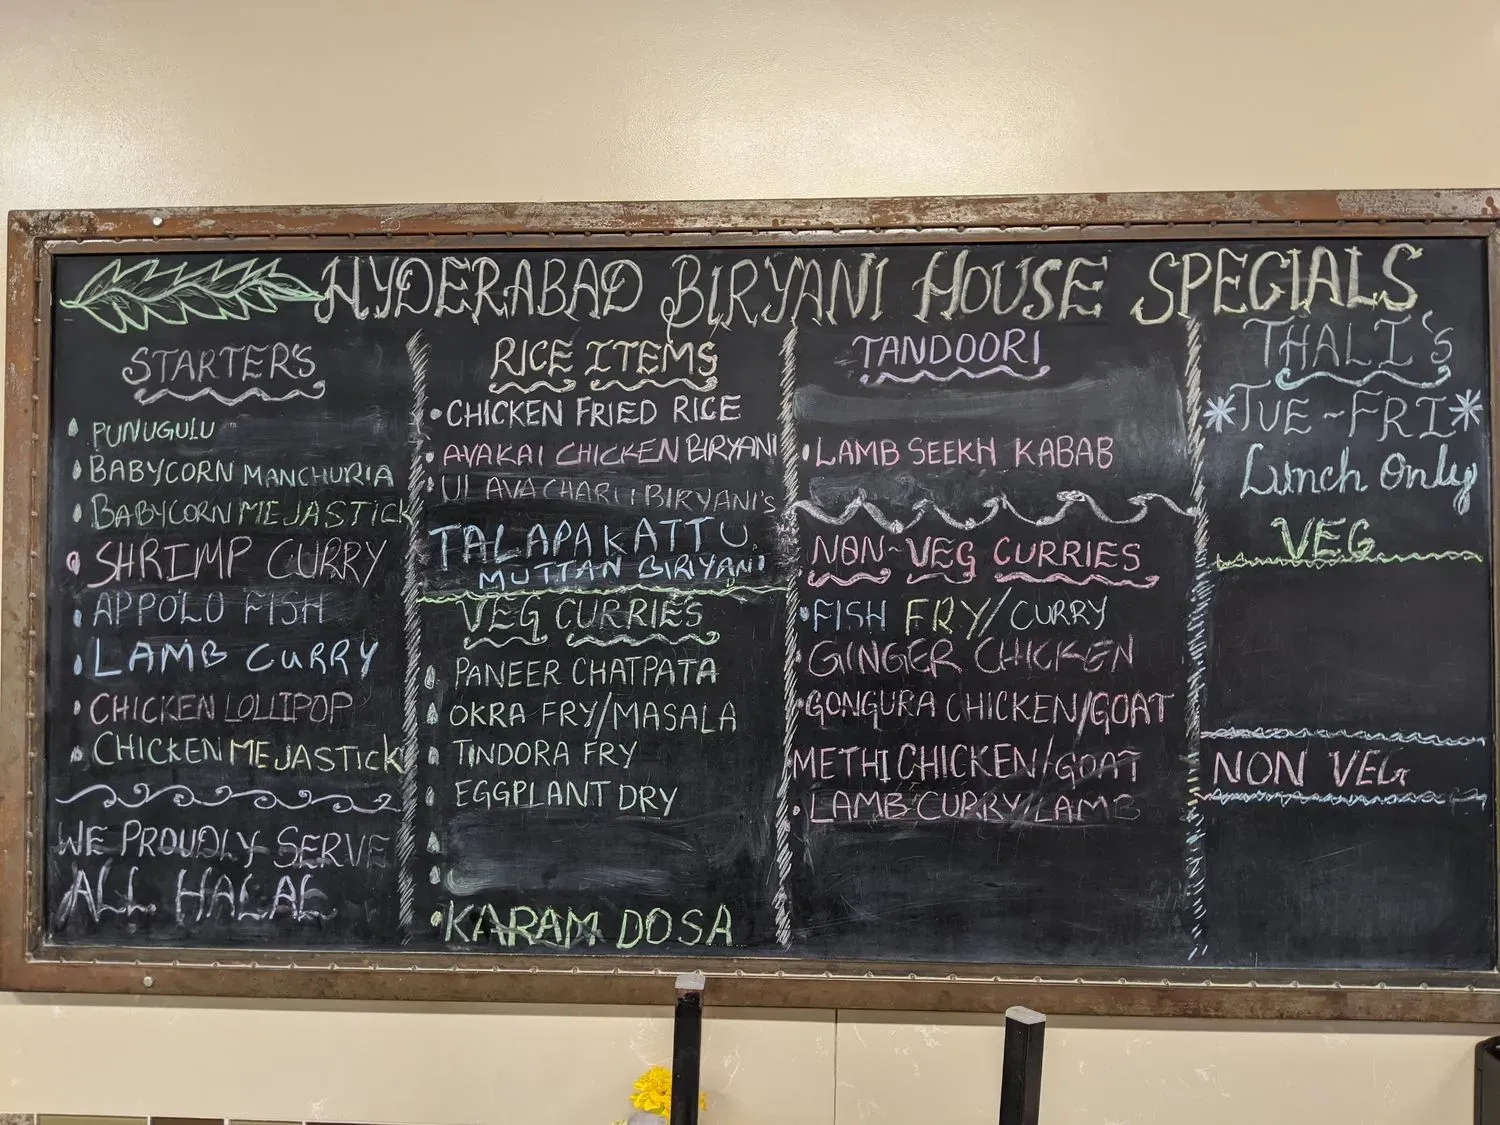 HYDERABAD BIRYANI HOUSE SPECIALS
STARTER'S
PUNUGULU
BABYCORN MANCHURIA
BABYCORN MEJASTICK
SHRIMP CURRY
APPOLO FISH
LAMB CURRY
CHICKEN LOLLIPOP
CHICKEN MEJASTICK
WE PROUDLY SERVE
ALL HALAL
RICE ITEMS
CHICKEN FRIED RICE
AVAKAI CHICKEN BIRYANI
BIRYANI'S
TALAPAKATTU
MUTTAN BIRIYANI
VEG CURRIES
PANEER CHATPATA
OKRA FRY/MASALA
TINDORA FRY
EGGPLANT DRY
KARAM DOSA
TANDOORI
LAMB SEEKH KABAB
NON-VEG CURRIES
FISH FRY/CURRY
GINGER CHICKEN
GONGURA CHICKEN/GOAT
METHI CHICKEN/GOAT
LAMB CURRY/LAMB
THALI'S
TUE-FRI
Lunch Only
VEG
NON VEG